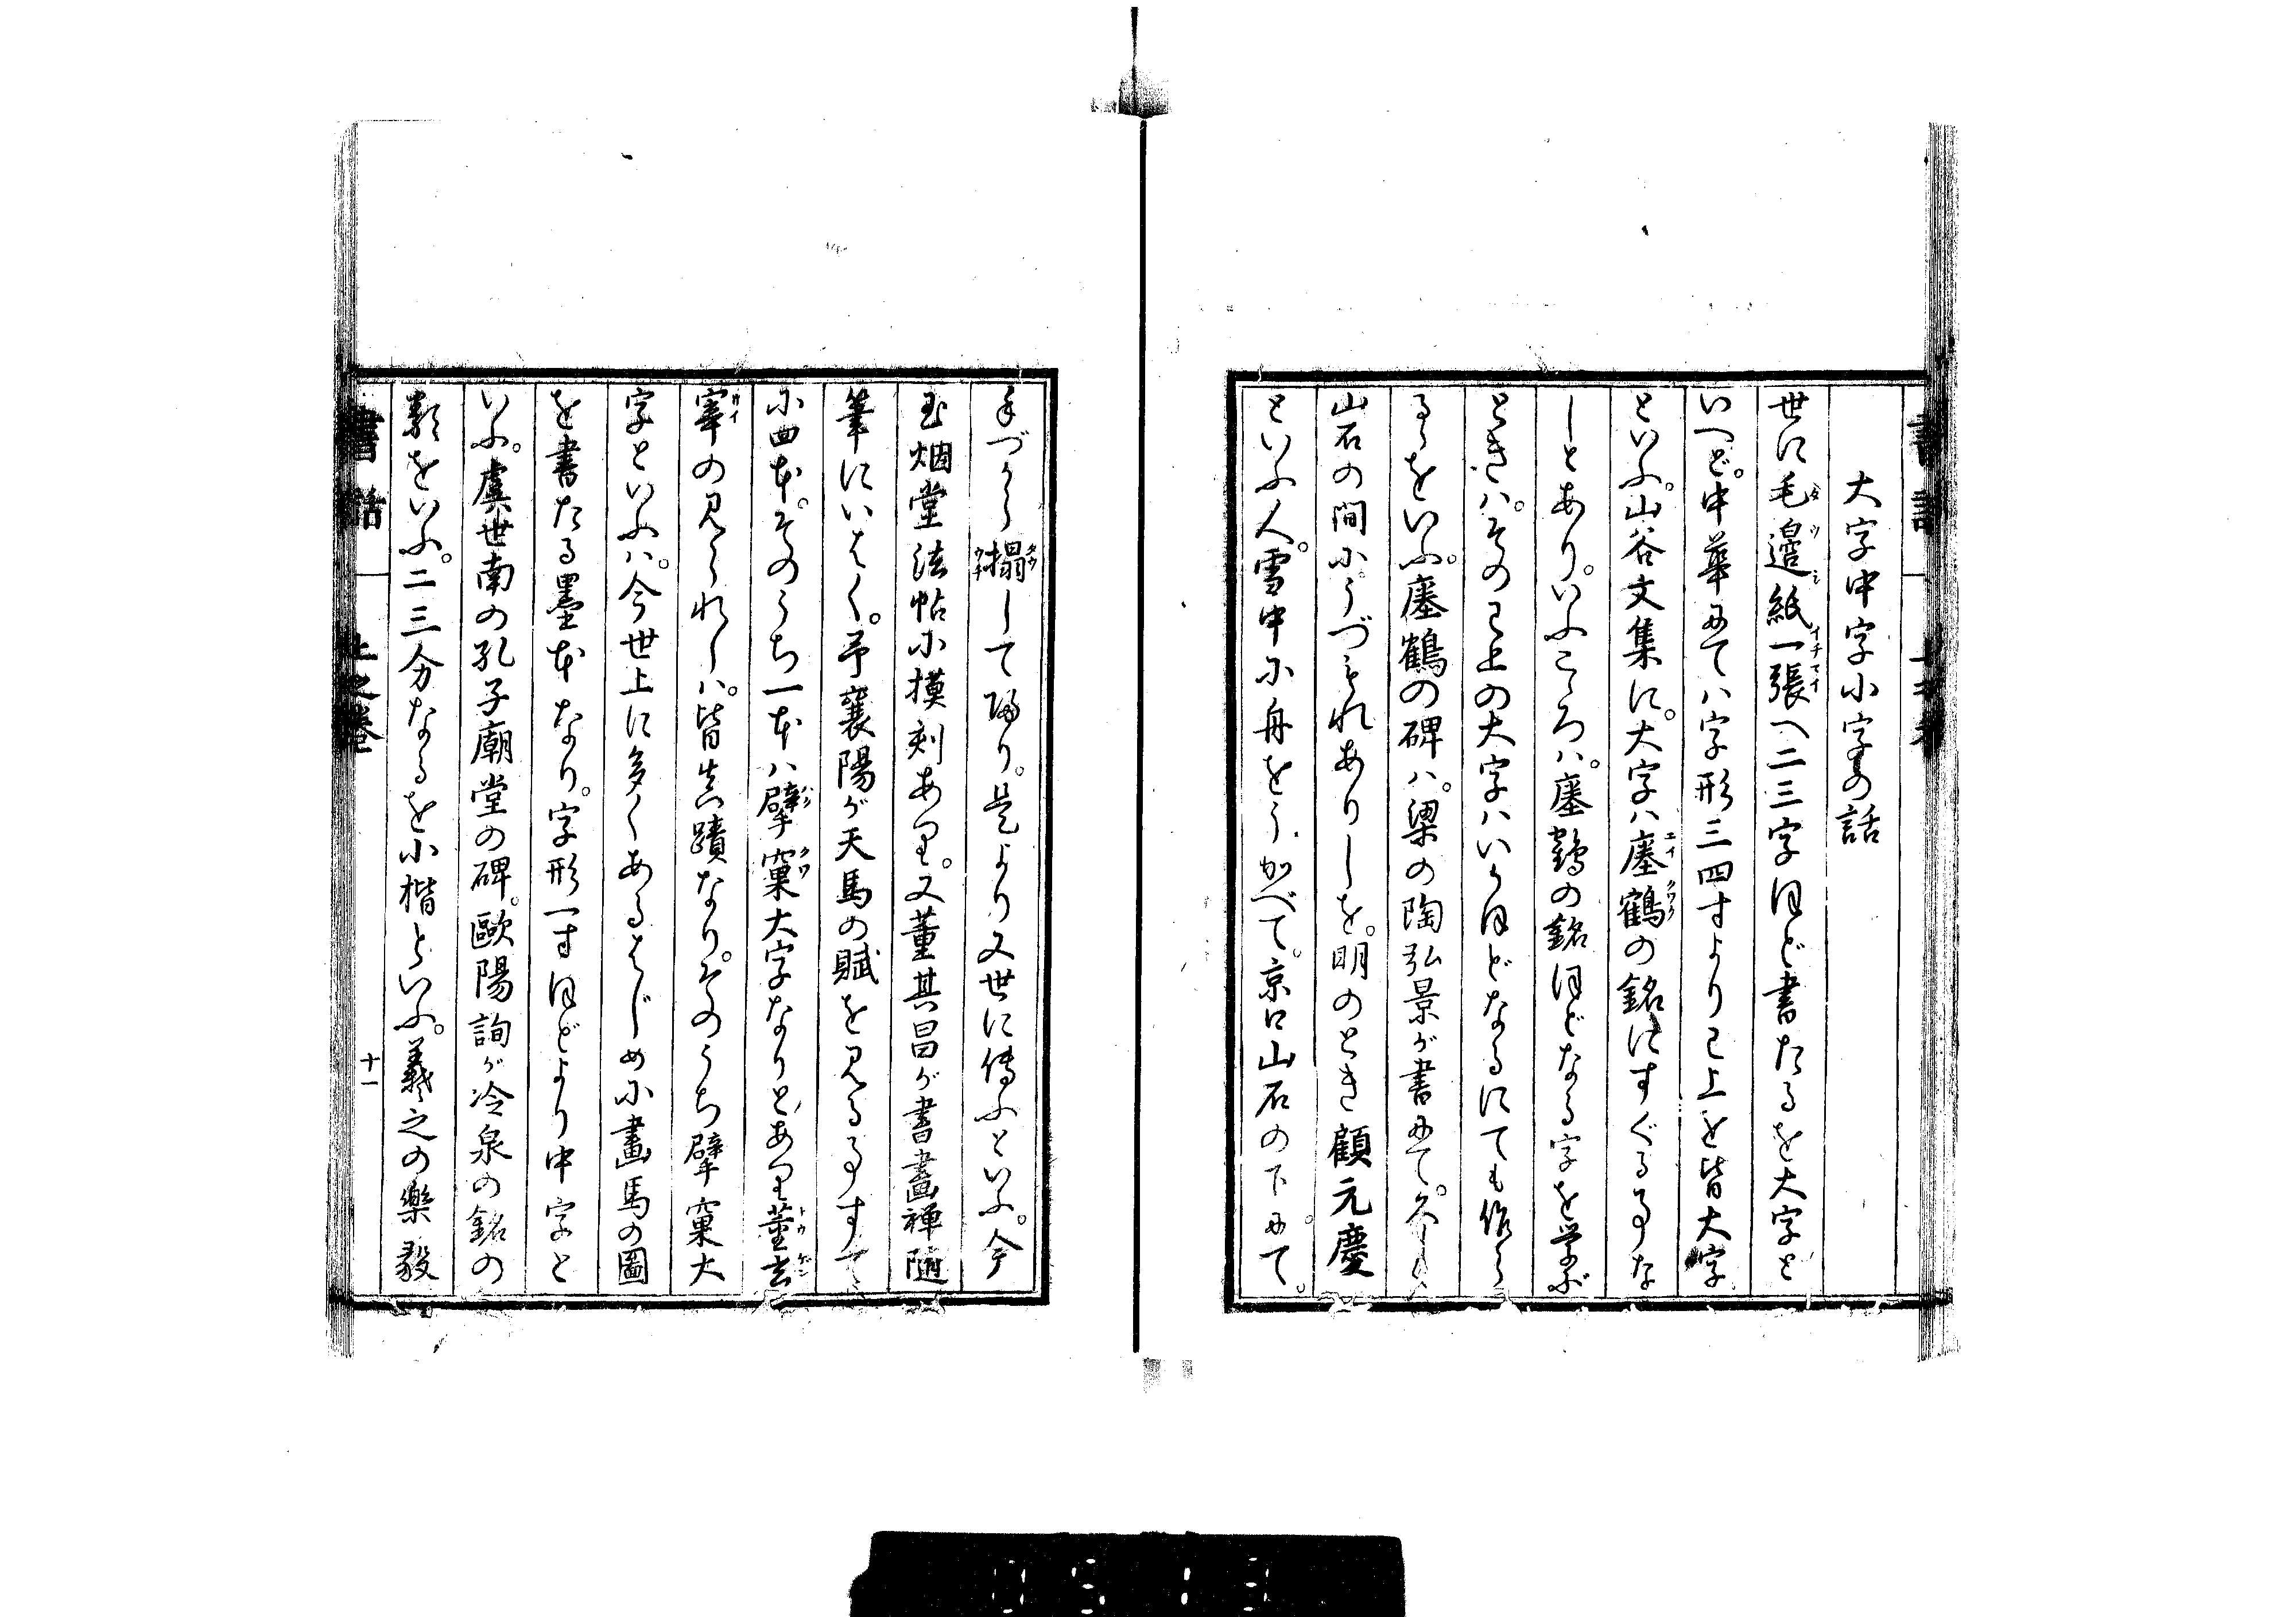 大字中字小字の話
世に毛邉紙一張へ二三字ほど書たるを大字と
いへど。中華にてハ字形三四寸より已上を皆大字
といふ。山谷文集に。大字ハ瘞鶴の銘にすぐる事な
しとあり。いふこゝろハ。瘞鶴の銘ほどなる字を学ぶ
ときハ。その已上の大字ハいかほどなるにても作ら
るゝをいふ。瘞鶴の碑ハ。梁の陶弘景が書にて。久しく
山石の間にうづもれありしを。明のとき顧元慶
といふ人。雪中に舟をうかべて。京口山石の下にて。
手づから搨して帰り。是より又世に傳ふといふ。今
玉烟堂法帖に摸刻あり。又董其昌が書畫禅随
筆にいはく。予襄陽が天馬の賦を見る事すべて
に四本。そのうち一本ハ擘窠大字なりとあり董玄
宰の見られしハ。皆真蹟なり。そのうち擘窠大
字といふハ。今世上に多くあるはじめに畫馬の圖
を書たる墨本なり。字形一寸ほどより中字と
いふ。虞世南の孔子廟堂の碑。歐陽詢が冷泉の銘の
類をいふ。二三分なるを小楷といふ。羲之の樂毅
書話
上之巻
十一